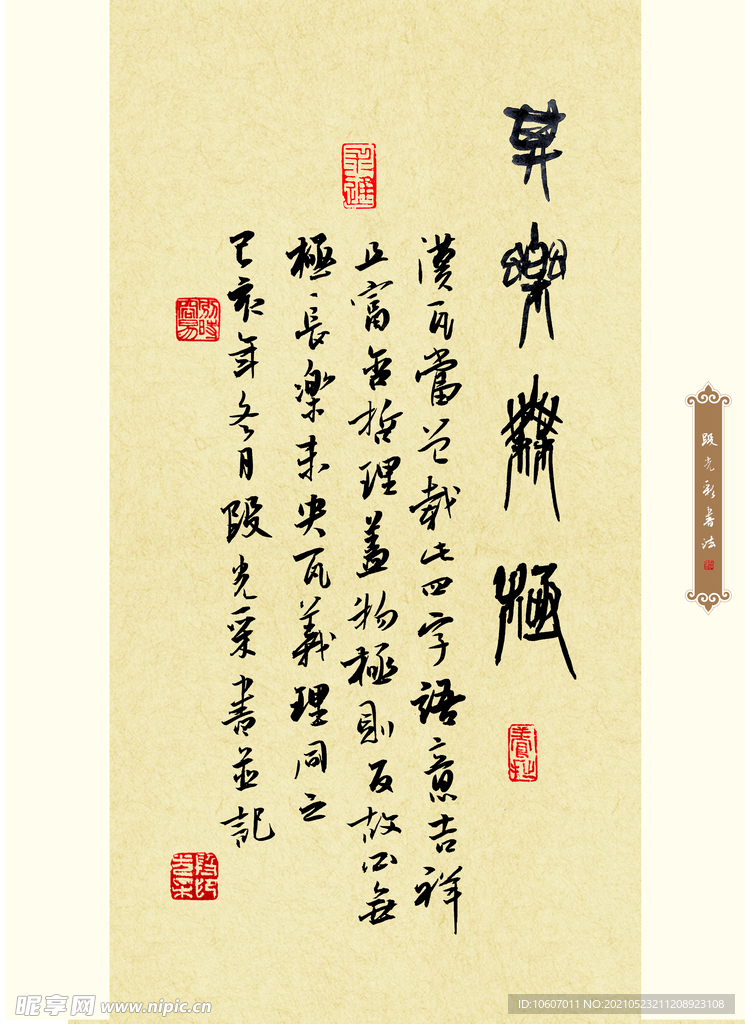 其樂無極
漢瓦當載此四字語意吉祥
且富含哲理蓋物極則反故無
極長樂未央瓦義理同之
己亥年冬月段光采書並記
別時容易
養拙
段光彩書法
昵享网 www.nipic.cn
ID:10607011 NO:20210523211208923108